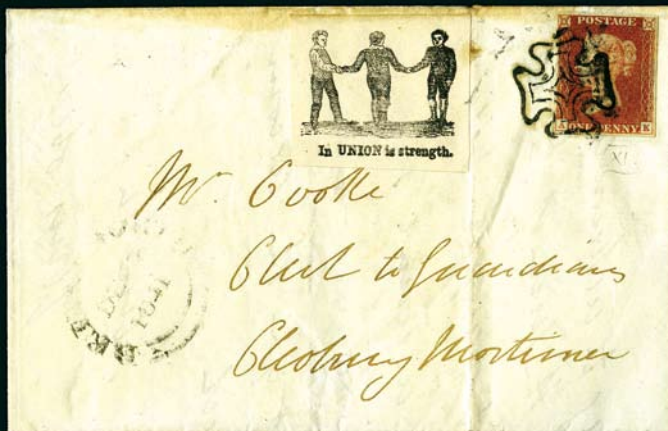 POSTAGE
ONE PENNY K
In UNION is strength.
Mr. Cooke
Clerk to Guardians
Cleobury Mortimer
1841